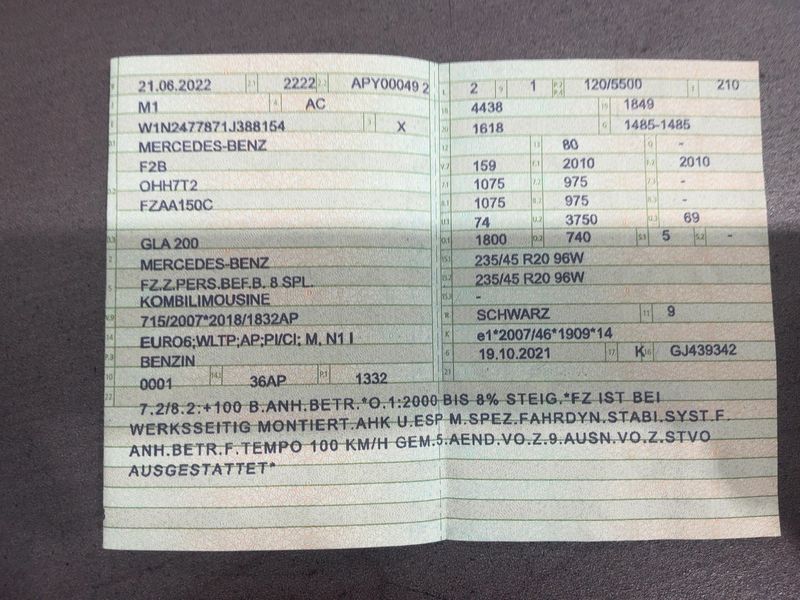 21.06.2022 2.1 2222 2.2 APY00049 2
M1 4 AC
W1N2477871J388154 3 X
MERCEDES-BENZ
F2B
OHH7T2
FZAA150C
GLA 200
MERCEDES-BENZ
FZ.Z.PERS.BEF.B. 8 SPL.
KOMBILIMOUSINE
715/2007*2018/1832AP
EURO6;WLTP;AP;PI/CI; M, N1 I
BENZIN
0001 36AP P.1 1332
L 2 9 1 P.2 P.4 120/5500 T 210
18 4438 19 1849
20 1618 G 1485-1485
12 - 13 80 Q -
V.7 159 F.1 2010 F.2 2010
7.1 1075 7.2 975 7.3 -
8.1 1075 8.2 975 8.3 -
U.1 74 U.2 3750 U.3 69
O.1 1800 O.2 740 S.1 5 S.2 -
15.1 235/45 R20 96W
15.2 235/45 R20 96W
15.3 -
R SCHWARZ 11 9
K e1*2007/46*1909*14
6 19.10.2021 17 K 16 GJ439342
21
22 7.2/8.2:+100 B.ANH.BETR.*O.1:2000 BIS 8% STEIG.*FZ IST BEI
WERKSSEITIG MONTIERT.AHK U.ESP M.SPEZ.FAHRDYN.STABI.SYST.F.
ANH.BETR.F.TEMPO 100 KM/H GEM.5.AEND.VO.Z.9.AUSN.VO.Z.STVO
AUSGESTATTET*